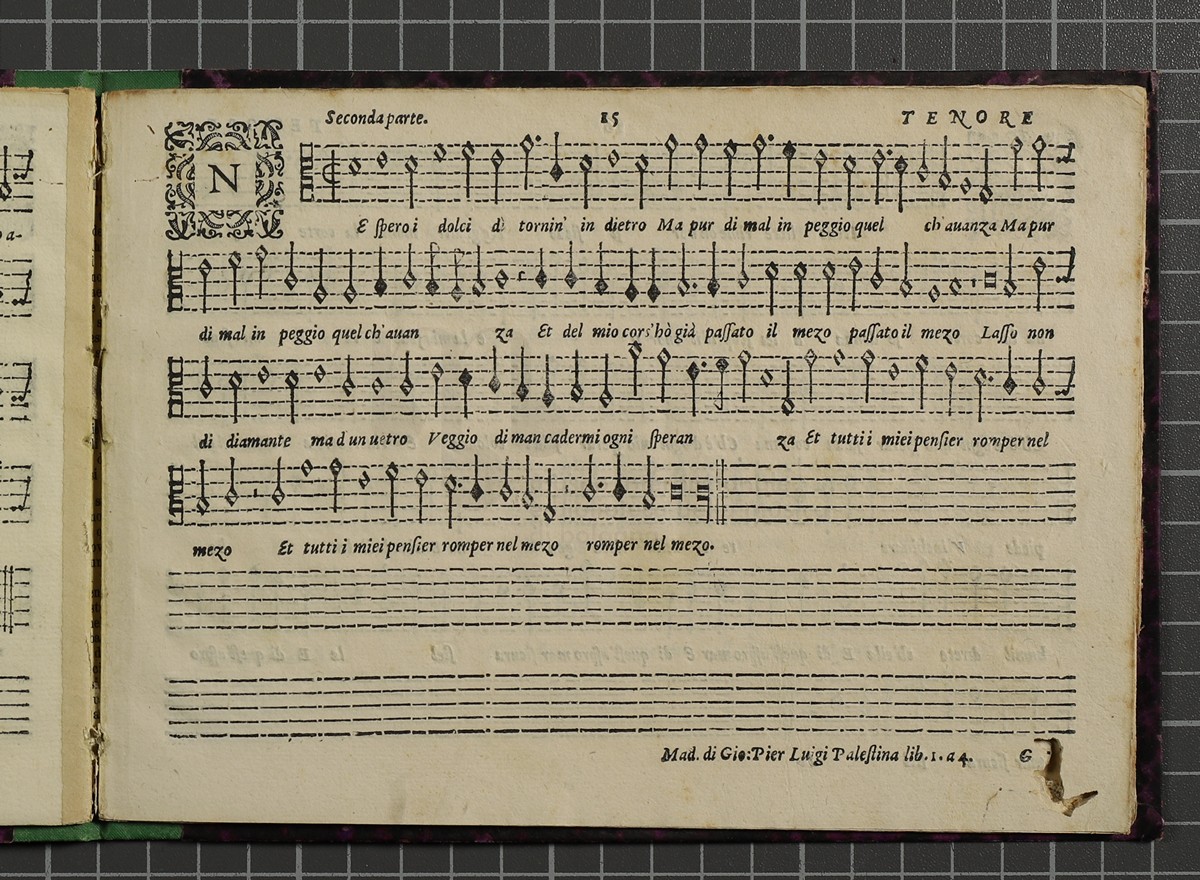 Seconda parte. 15 TENORE
N
E ſpero i dolci dì tornin' in dietro Ma pur di mal in peggio quel ch'auanza Ma pur
di mal in peggio quel ch'auan za Et del mio cors' hò già paſſato il mezo paſſato il mezo Laſſo non
di diamante ma d'un uetro Veggio di man cadermi ogni ſperan za Et tutti i miei penſier romper nel
mezo Et tutti i miei penſier romper nel mezo romper nel mezo.
Mad. di Gio: Pier Luigi Paleſtina lib. 1. a 4. G